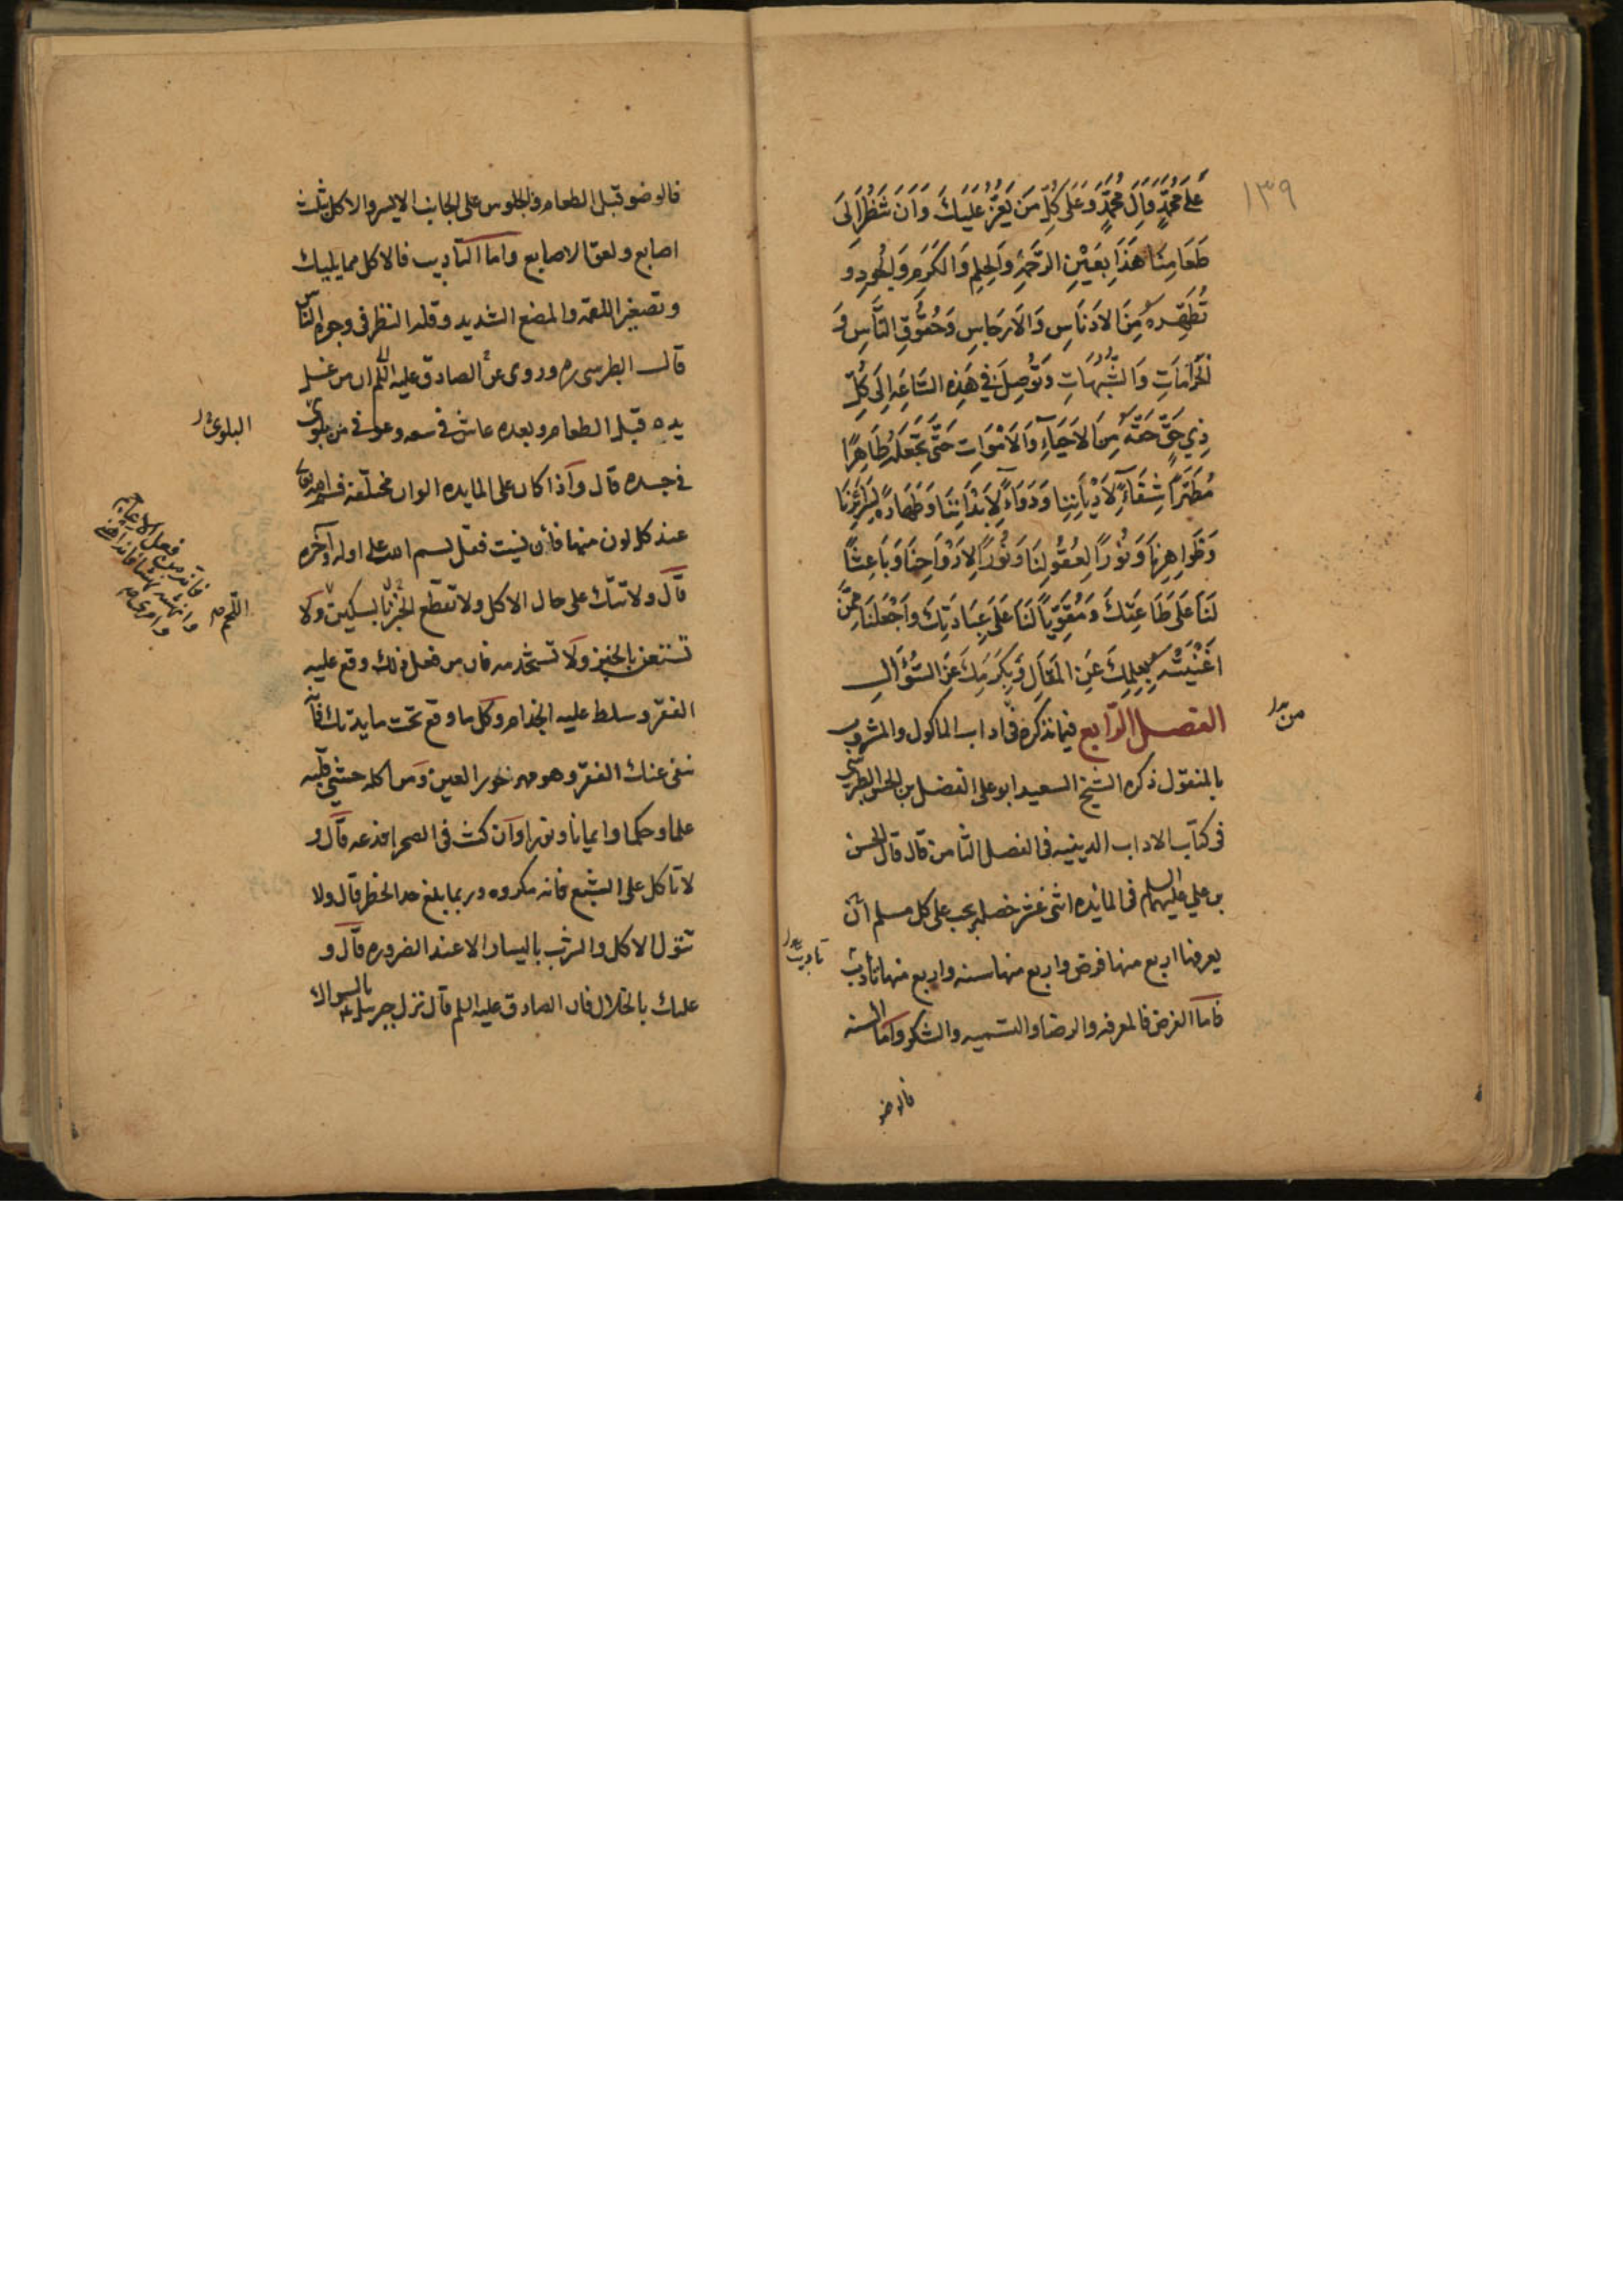 ١٣٩
عَلَى مُحَمَّدٍ وَآلِ مُحَمَّدٍ وَعَلَى كُلِّ مَن يَعُزُّ عَلَيكَ وَاَن تَنظُرَ اِلَى
طَعَامِنَا هَذَا بِعَيْنِ الرَّحمَةِ وَالحِلمِ وَالكَرَمِ وَالجُودِ وَ
تُطَهِّرَهُ مِنَ الاَدنَاسِ وَالاَرجَاسِ وَحُقُوقِ النَّاسِ وَ
الحَرَامَاتِ وَالشُّبُهَاتِ وَتُوصِلَ فِي هَذِهِ السَّاعَةِ اِلَى كُلِّ
ذِي حَقٍّ حَقَّهُ مِنَ الاَحيَآءِ وَالاَمْوَاتِ حَتَّى تَجعَلَهُ طَاهِرًا
مُطَهَّرًا شِفَآءً لاَدْيَانِنَا وَدَوَاءً لاَبْدَانِنَا وَطَهَارَةً لِسَرَائِرِنَا
وَظَوَاهِرِنَا وَنُورًا لِعُقُولِنَا وَنُورًا لاَرْوَاحِنَا وَبَاعِثًا
لَنَا عَلَى طَاعَتِكَ وَمُقَوِّيًا لَنَا عَلَى عِبَادَتِكَ وَاجْعَلنَا مِمَّن
اَغْنَيتَهُ بِعِلمِكَ عَنِ المَقَالِ وَبِكَرَمِكَ عَنِ السُّؤَالِ
الفصل الرابع فيما نذكره فى اداب الماكول والمشروب
من
بالمنقول ذكره الشيخ السعيد ابو على الفضل بن الحسن الطبرسى
فى كتاب الاداب الدينيه فى الفصل الثامن قال قال الحسن
بن على عليهما السلم فى المائده اثنى عشر خصله يجب على كل مسلم ان
يعرفها اربع منها فرض واربع منها سنه واربع منها تأديب
تاديب
فاما الفرض فالمعرفه والرضا والتسميه والشكر واما السنه
فالوضو
فالوضو قبل الطعام والجلوس على الجانب الايسر والاكل بثلث
اصابع ولعق الاصابع واما التاديب فالاكل مما يليك
وتصغير اللقمه والمضغ الشديد وقله النظر فى وجوه الناس
قال الطبرسى ره وروى عن الصادق عليه السلم ان من غسل
يده قبل الطعام وبعده عاش فى سعه وعوفى من بلوى
البلوى
فى جسده قال واذا كان على المايده الوان مختلفه فسم الله تعالى
عند كل لون منها فان نسيت فقل بسم الله على اوله وآخره
قال ولا تتك على حال الاكل ولا تقطع الخبز بالسكين ولا
اللحم
فانه من فعل الاعاجم
وانهشه نهشا فانه اهنى
وامرى
تستعن بالخبز ولا تستخدمه فان من فعل ذلك وقع عليه
الفقر وسلط عليه الجذام وكل ما وقع تحت مايدتك فانه
ينفى عنك الفقر وهو مهر حور العين ومن اكله حشى قلبه
علما وحكما وايمانا ونورا وان كنت فى الصحرا فدعه قال و
لا تاكل على الشبع فانه مكروه وربما بلغ حد الحظر قال ولا
تتول الاكل والشرب باليسار الا عند الضروره قال و
عليك بالخلال فان الصادق عليه السلم قال نزل جبرييل ع بالسواك